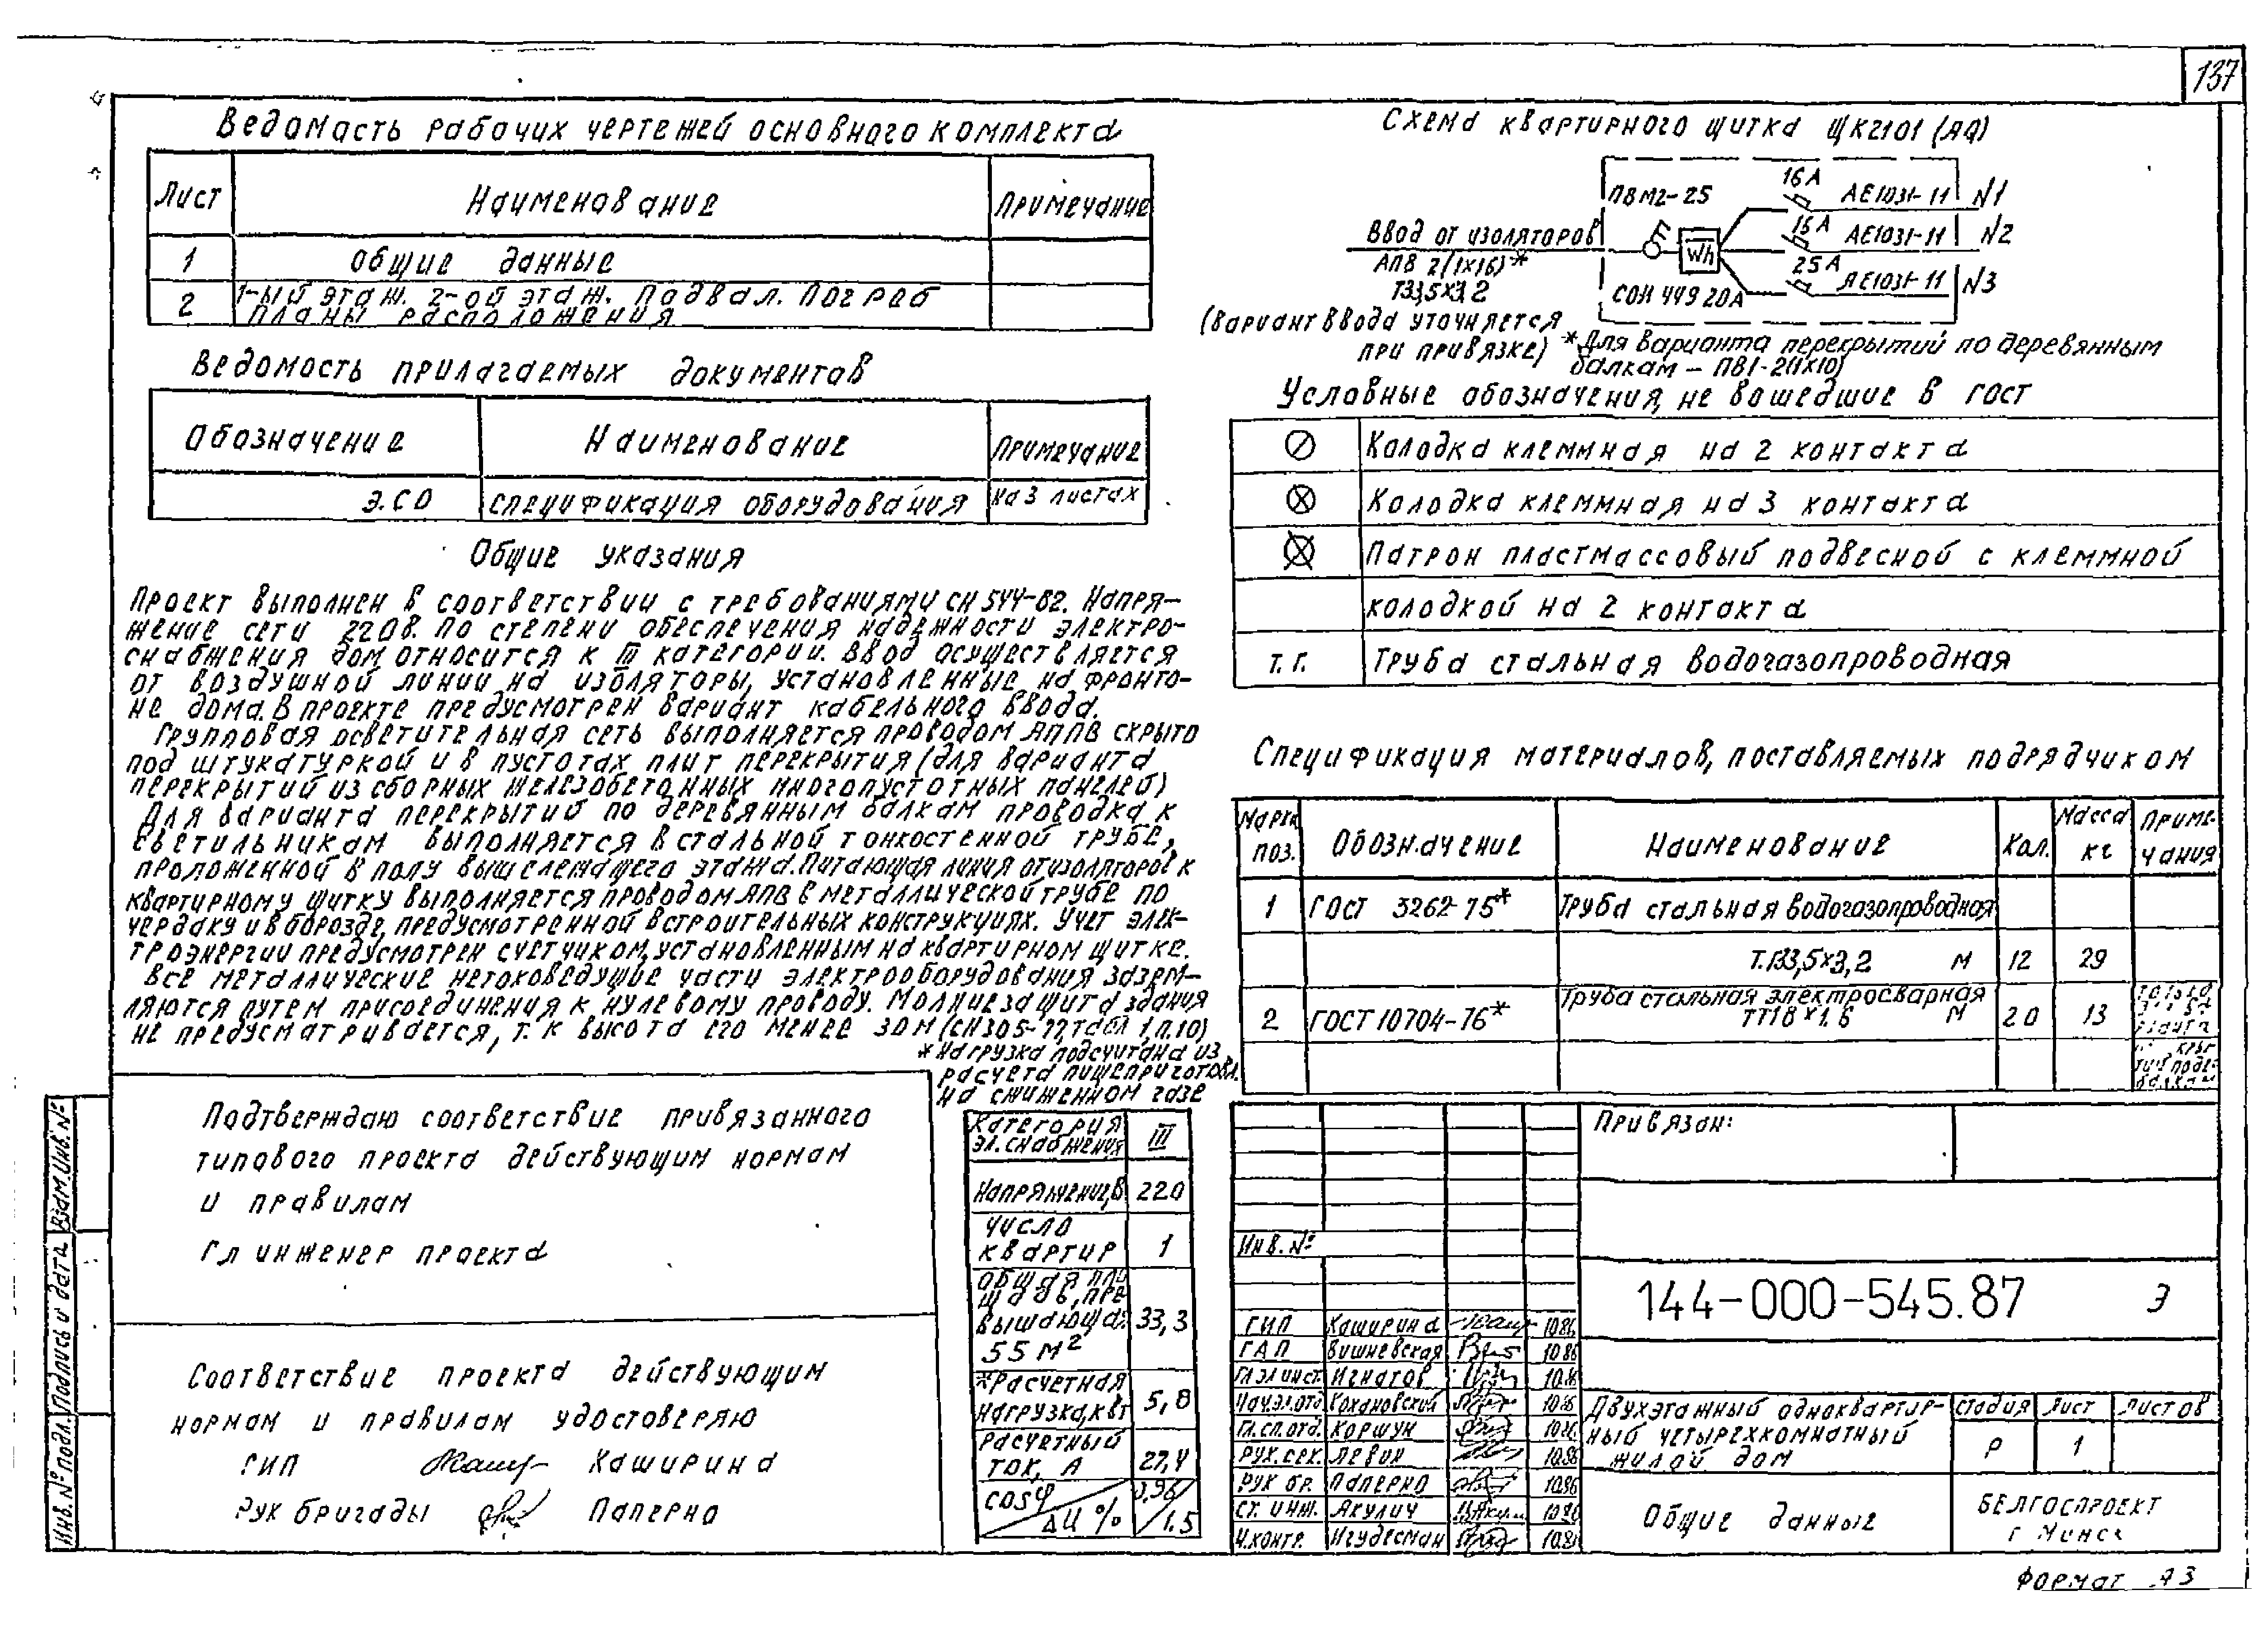 137
Ведомасть рабочих чертежей основного комплекта
Лист Наименование Примечание
1 Общие данные
2 1-ый этаж. 2-ой этаж. Подвал. Погреб
Планы расположения
Ведомость прилагаемых документов
Обозначение Наименование Примечание
Э.СО Спецификация оборудования На 3 листах
Общие указания
Проект выполнен в соответствии с требованиями СН 544-82. Напря-
жение сети 220в. По степени обеспечения надежности электро-
снабжения дом относится к III категории. Ввод осуществляется
от воздушной линии на изоляторы, установленные на фронто-
не дома. В проекте предусмотрен вариант кабельного ввода.
Групповая осветительная сеть выполняется проводом АППВ скрыто
под штукатуркой и в пустотах плит перекрытия (для варианта
перекрытий из сборных железобетонных многопустотных панелей)
Для варианта перекрытий по деревянным балкам проводка к
светильникам выполняется в стальной тонкостенной трубе,
проложенной в полу вышележащего этажа. Питающая линия от изоляторов к
квартирному щитку выполняется проводом АПВ в металлической трубе по
чердаку и в борозде, предусмотренной в строительных конструкциях. Учет элек-
троэнергии предусмотрен счетчиком, установленным на квартирном щитке.
Все металлические нетоковедущие части электрооборудования зазем-
ляются путем присоединения к нулевому проводу. Молниезащита здания
не предусматривается, т.к высота его менее 30м (СН 305-77, табл 1, п.10)
* Нагрузка подсчитана из
расчета пищеприготовл.
на сжиженном газе
Подтверждаю соответствие привязанного
типового проекта действующим нормам
и правилам
Гл инженер проекта
Соответствие проекта действующим
нормам и правилам удостоверяю
ГИП Каширина
Рук бригады Паперно
Категория
эл.снабжения III
Напряжение,в 220
Число
квартир 1
Общая пло
щадь, пре
вышающая
55 м² 33,3
*Расчетная
нагрузка,квт 5,8
Расчетный
ток, А 27,4
cosφ 0,96
ΔU % 1.5
Схема квартирного щитка ЩК2101 (ЯА)
ПВМ2-25 16А АЕ1031-11 N1
Ввод от изоляторов 16А АЕ1031-11 N2
АПВ 2(1×16)* Wh 25А АЕ1031-11 N3
Т33,5×3,2 СОИ 449 20А
(Вариант ввода уточняется
при привязке) *Для варианта перекрытий по деревянным
балкам – ПВ1-2(1×10)
Условные обозначения, не вошедшие в ГОСТ
Колодка клеммная на 2 контакта
Колодка клеммная на 3 контакта
Патрон пластмассовый подвесной с клеммной
колодкой на 2 контакта
Т. Г. Труба стальная водогазопроводная
Спецификация материалов, поставляемых подрядчиком
Марка поз. Обозначение Наименование Кол. Масса кг Приме-
чания
1 ГОСТ 3262-75* Труба стальная водогазопроводная
Т.Г33,5×3,2 м 12 29
2 ГОСТ 10704-76* Труба стальная электросварная
ТТ18×1.6 м 20 13
Привязан:
Инв. №
144-000-545.87 Э
ГИП Каширина 10.86
ГАП Вишневская 10.86
Гл.эл.инст. Игнатов 10.86
Нач.эл.отд. Кохановский 10.86
Гл.сп.отд. Коршук 10.86
Рук. сек. Левин 10.86
Рук бр. Паперно 10.86
Ст. инж. Якулич 10.86
Н.контр. Игудесман 10.86
Двухэтажный одноквартир-
ный четырехкомнатный
жилой дом
Стадия Лист Листов
Р 1
Общие данные
БЕЛГОСПРОЕКТ
г Минск
Формат А3
Инв. № подл. Подпись и дата Взам. Инв. №